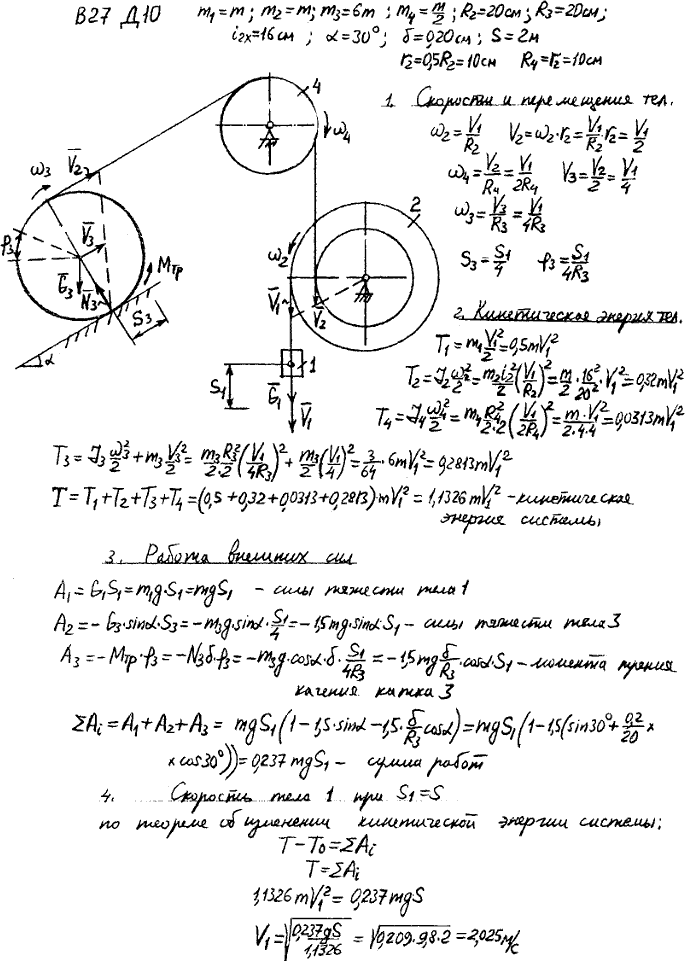 В27 Д10 m₁=m; m₂=m; m₃=6m; m₄=m/2; R₂=20см; R₃=20см;
i₂ₓ=16см; α=30°; δ=0,20см; S=2м
r₂=0,5R₂=10см R₄=r₂=10см
1. Скорости и перемещения тел.
ω₂=V₁/R₂ V₂=ω₂·r₂=V₁/R₂·r₂=V₁/2
ω₄=V₂/R₄=V₁/2R₄ V₃=V₂/2=V₁/4
ω₃=V₃/R₃=V₁/4R₃
S₃=S₁/4 φ₃=S₁/4R₃
4
ω₄
ω₃
V̅₂
2
φ₃
V̅₃
Mтр
ω₂
G̅₃
N̅₃
V̅₁
V̅₂
S₃
α
1
S₁
G̅₁
V̅₁
2. Кинетическая энергия тел.
T₁=m₁V₁²/2=0,5mV₁²
T₂=J₂ω₂²/2=m₂i₂²/2(V₁/R₂)²=m/2·16²/20²·V₁²=0,32mV₁²
T₄=J₄ω₄²/2=m₄R₄²/2·2(V₁/2R₄)²=m·V₁²/2·4·4=0,0313mV₁²
T₃=J₃ω₃²/2+m₃V₃²/2=m₃R₃²/2·2(V₁/4R₃)²+m₃/2(V₁/4)²=3/64·6mV₁²=0,2813mV₁²
T=T₁+T₂+T₃+T₄=(0,5+0,32+0,0313+0,2813)·mV₁²=1,1326mV₁² - кинетическая
энергия системы
3. Работа внешних сил
A₁=G₁S₁=m₁g·S₁=mgS₁ - силы тяжести тела 1
A₂=-G₃·sinα·S₃=-m₃g·sinα·S₁/4=-1,5mg·sinα·S₁ - силы тяжести тела 3
A₃=-Mтр·φ₃=-N₃δ·φ₃=-m₃g·cosα·δ·S₁/4R₃=-1,5mgδ/R₃·cosα·S₁ - момента трения
качения катка 3
ΣAᵢ=A₁+A₂+A₃=mgS₁(1-1,5·sinα-1,5·δ/R₃cosα)=mgS₁(1-1,5(sin30°+0,2/20×
×cos30°))=0,237mgS₁ - сумма работ
4. Скорость тела 1 при S₁=S
по теореме об изменении кинетической энергии системы:
T-T₀=ΣAᵢ
T=ΣAᵢ
1,1326mV₁²=0,237mgS
V₁=√(0,237gS/1,1326)=√(0,209·9,8·2)=2,025м/с